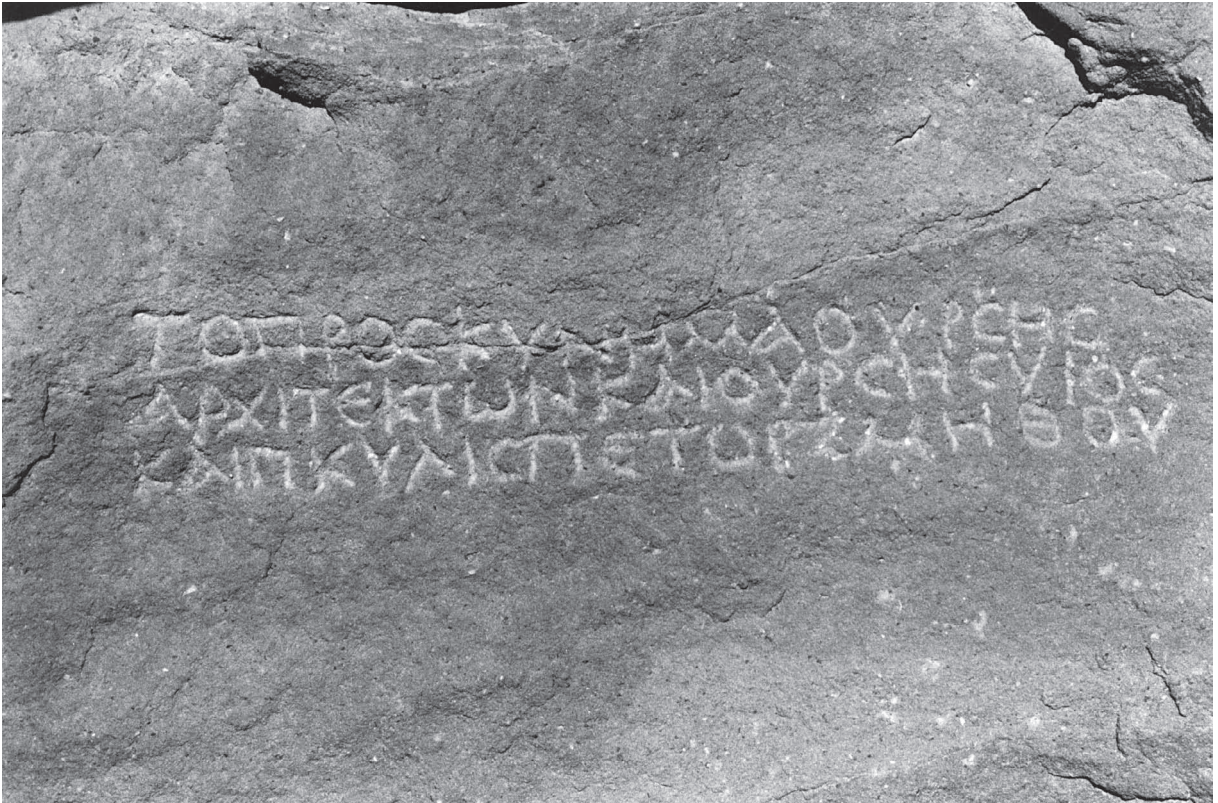 ΤΟΠΡΟСΚΥΝΗΜΑΟΥΡСΗС
ΑΡΧΙΤΕΚΤΩΝΚΑΙΟΥΡСΗСΥΙΟС
ΚΑΙΠΚΥΛΙСΠΕΤΩΓΕΜΗΘΟΥ